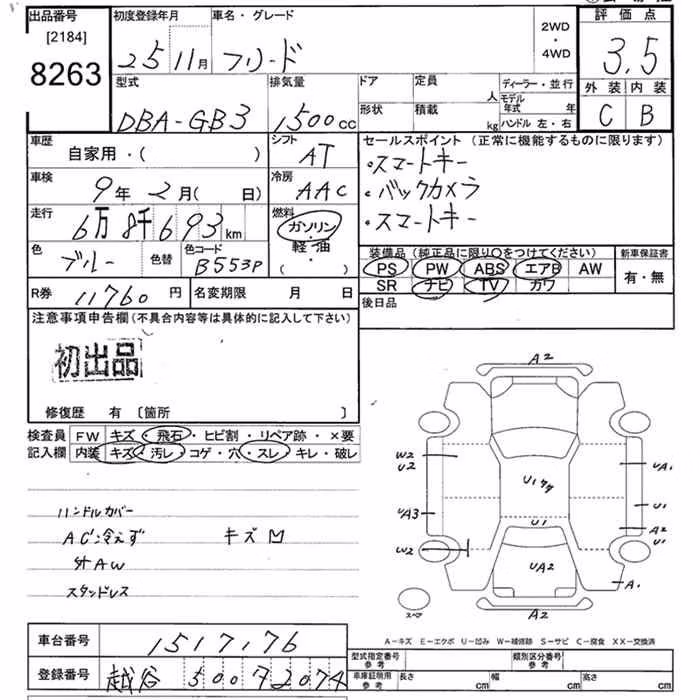 出品番号
[2184]
8263
初度登録年月
25 11月
車名・グレード
フリード
2WD
・
4WD
評価点
3.5
外装 内装
C B
型式
DBA-GB3
排気量
1500 cc
ドア
形状
定員
人
積載
kg
ディーラー・並行
モデル年式 年
ハンドル 左・右
車歴
自家用・( )
シフト
AT
車検
9年2月( 日)
冷房
AAC
走行
6万8千693 km
燃料
ガソリン
・
軽油
・
( )
色
ブルー
色替
色コード
B553P
R券 11760 円
名変期限 月 日
セールスポイント (正常に機能するものに限ります)
・スマートキー
・バックカメラ
・スマートキー
装備品 (純正品に限り○をつけてください)
PS PW ABS エアB AW
SR ナビ TV カワ
新車保証書
有・無
後日品
注意事項申告欄(不具合内容等は具体的に記入して下さい)
初出品
修復歴 有 〔箇所 〕
検査員
記入欄
FW キズ・飛石・ヒビ割・リペア跡・×要
内装 キズ・汚レ・コゲ・穴・スレ・キレ・破レ
ハンドルカバー
AC冷えず キズ凹
外AW
スタッドレス
A2
W2
U2
UA3
W2
U1
U1
UA2
A2
UA1
U1
A2
U1
A1
スペア
A-キズ E-エクボ U-凹み W-補修跡 S-サビ C-腐食 XX-交換済
車台番号 1517176
登録番号 越谷 500 た 2074
型式指定番号
参考
類別区分番号
参考
車庫証明用
参考
長さ cm 幅 cm 高さ cm